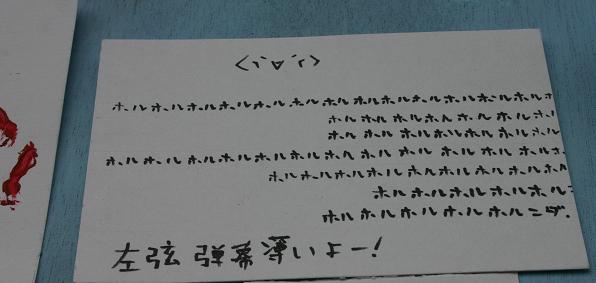 <丶`∀´>
ホルホルホルホルホルホルホルホルホルホルホルホルホ
ホルホルホルホルホルホルホ
ホルホルホルホルホルホル
ホルホルホルホルホルホルホルホルホルホルホルホルホ
ホルホルホルホルホルホルホルホル
ホルホルホルホルホル
ホルホルホルホルホルホルニダ.
左弦 弾幕薄いよー!